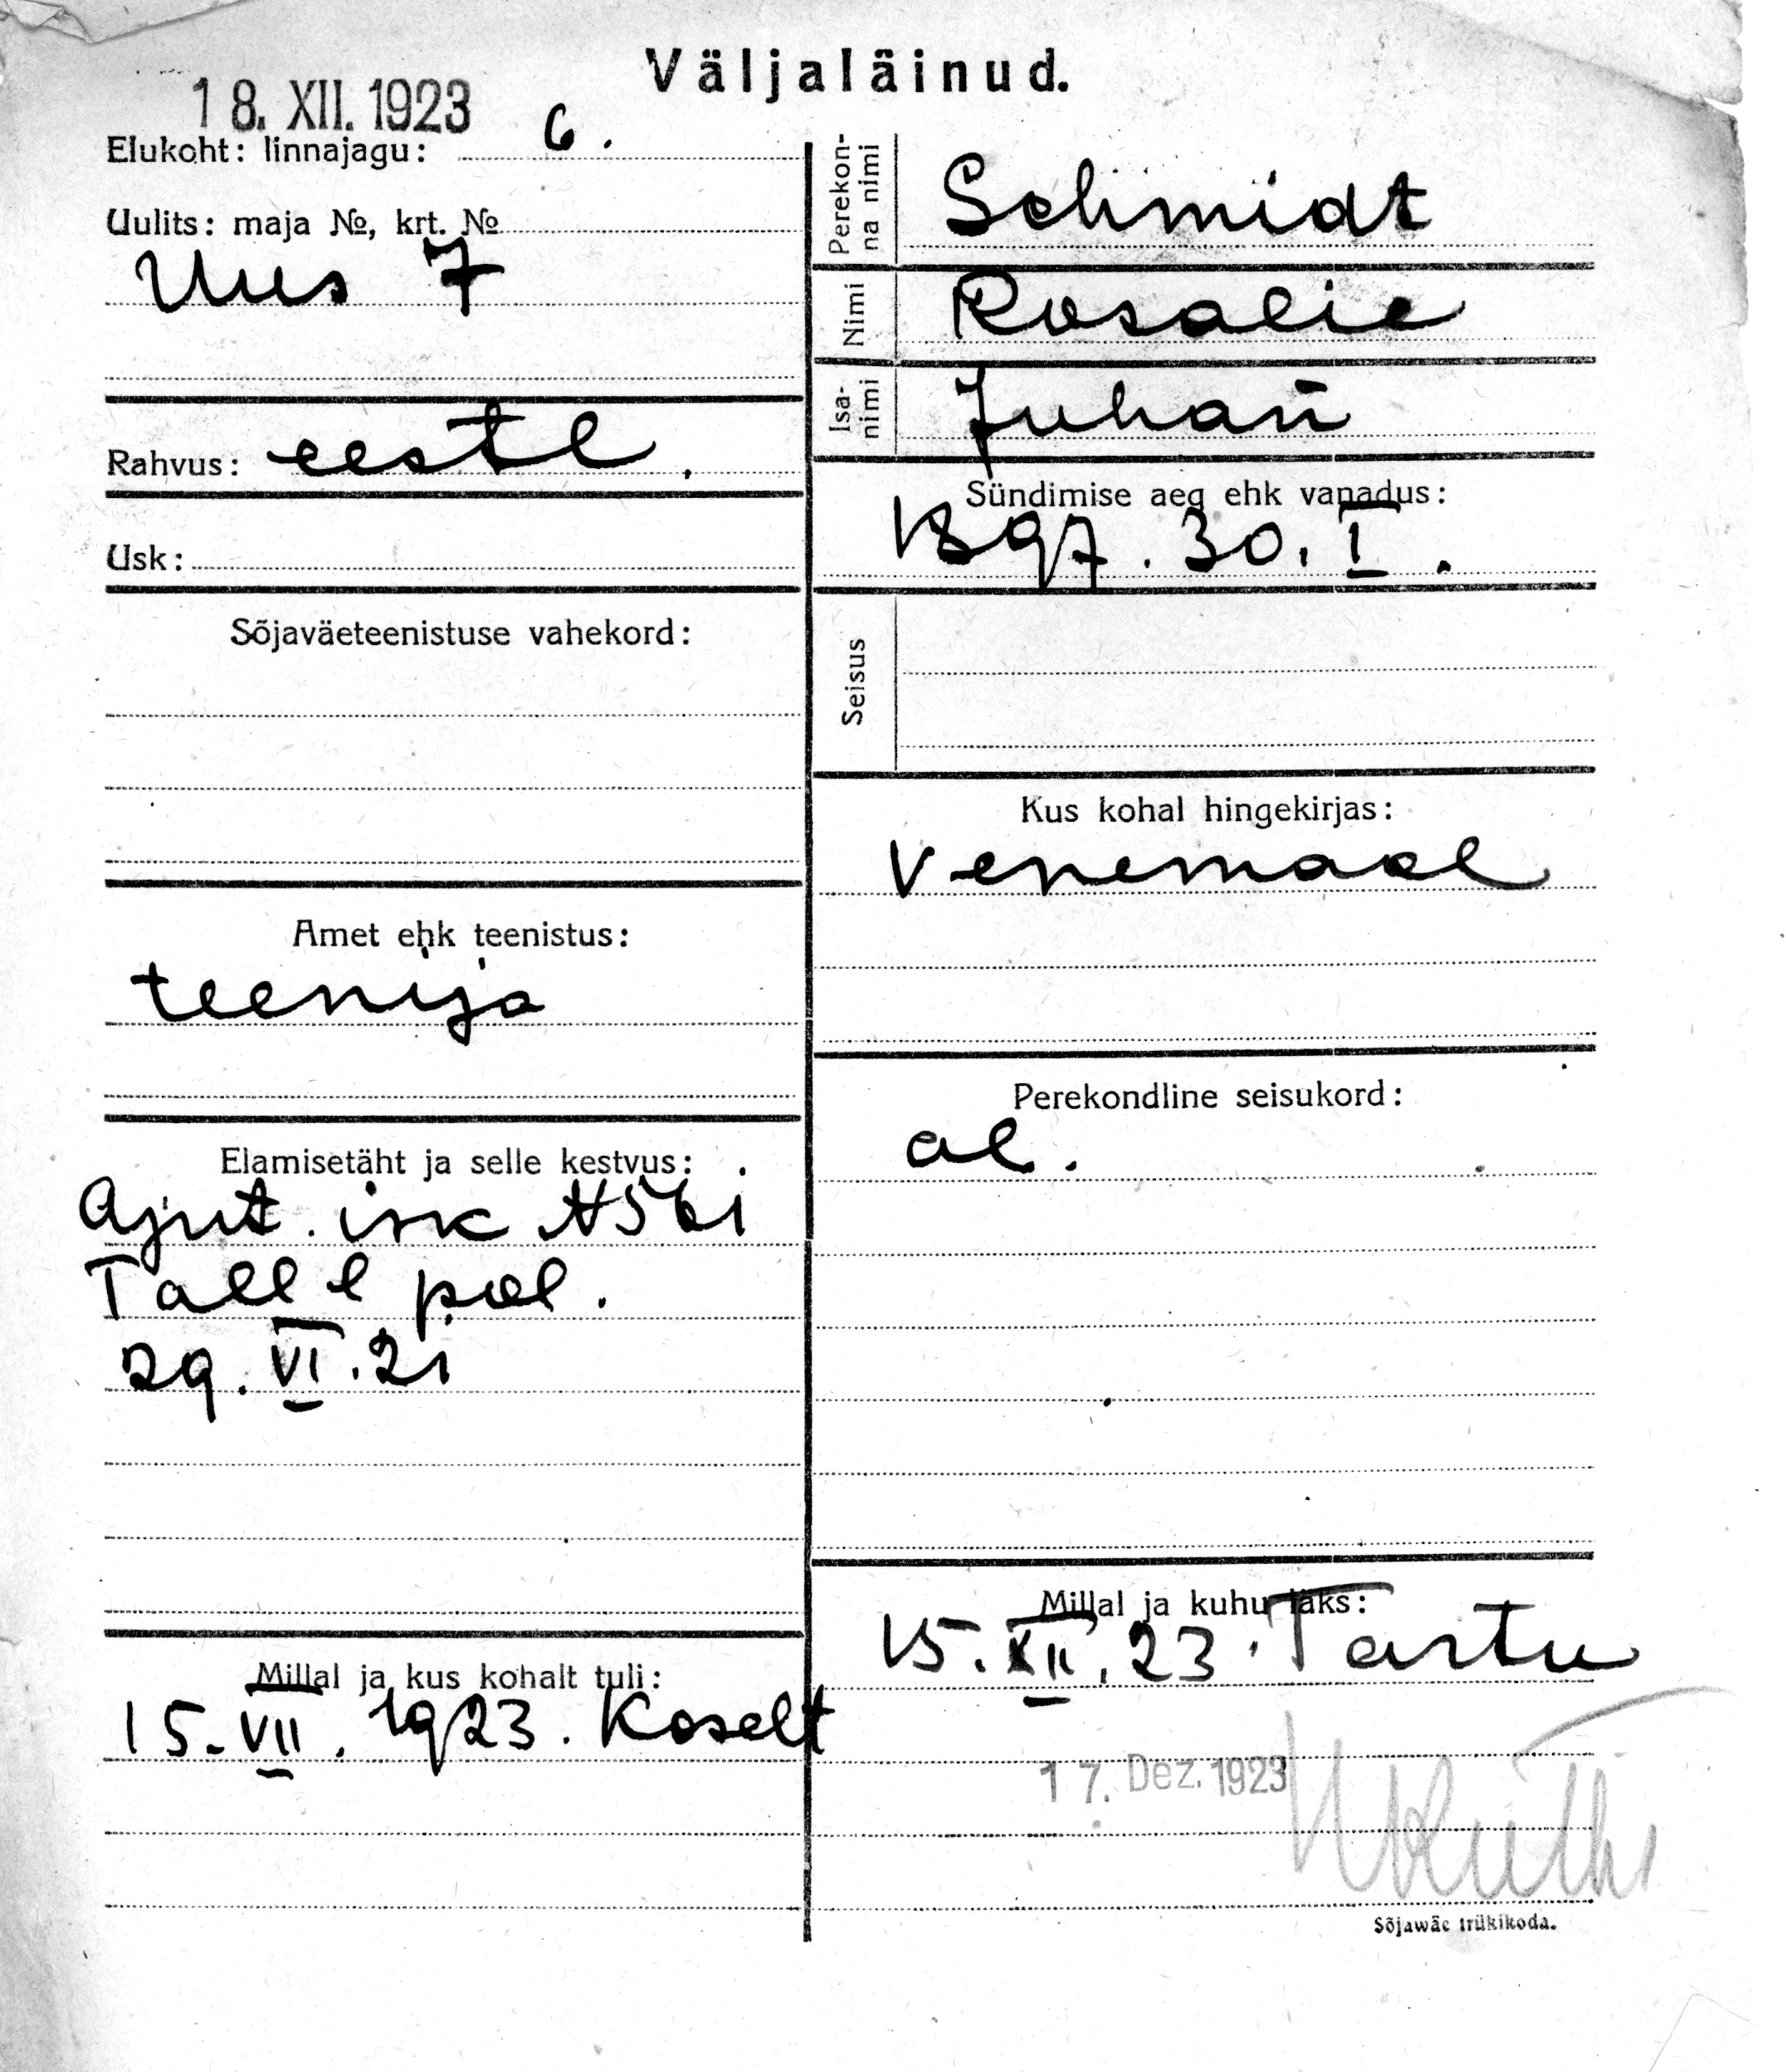 Väljaläinud.
18. XII. 1923
Elukoht: linnajagu: 6.
Uulits: maja №, krt. №
Uus 7
Rahvus: eestl.
Usk:
Sõjaväeteenistuse vahekord:
Amet ehk teenistus:
teenija
Elamisetäht ja selle kestvus:
Ajut. isk N561
Tall l pol.
29. VI. 21
Millal ja kus kohalt tuli:
15. VII. 1923. Koselt
Perekon-
na nimi
Schmidt
Nimi
Rosalie
Isa-
nimi
Juhan
Sündimise aeg ehk vanadus:
1897. 30. I.
Seisus
Kus kohal hingekirjas:
Venemaal
Perekondline seisukord:
al.
Millal ja kuhu läks:
15. XII. 23. Tartu
17. Dez. 1923
Sõjawäe trükikoda.